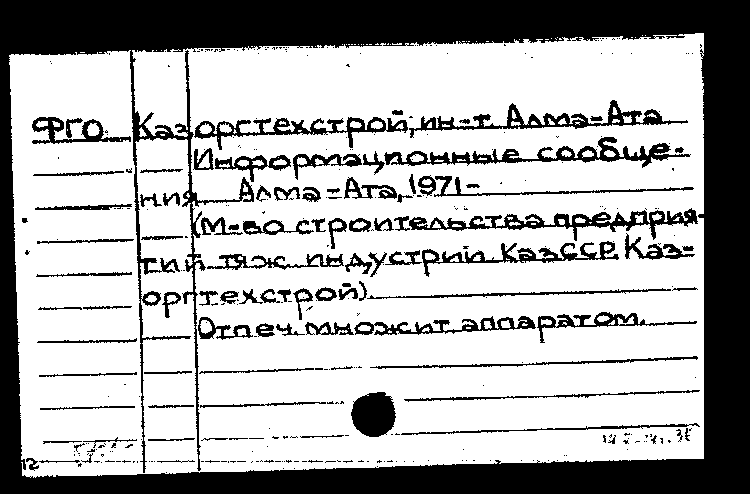 ФГО Казоргтехстрой, ин-т. Алма-Ата
Информационные сообще-
ния. Алма-Ата, 1971-
(М-во строительства предприя-
тий тяж. индустрии КазССР. Каз-
оргтехстрой).
Отпеч. множит. аппаратом.
12